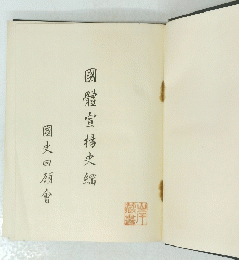 國體宣揚史編
國史回顧會